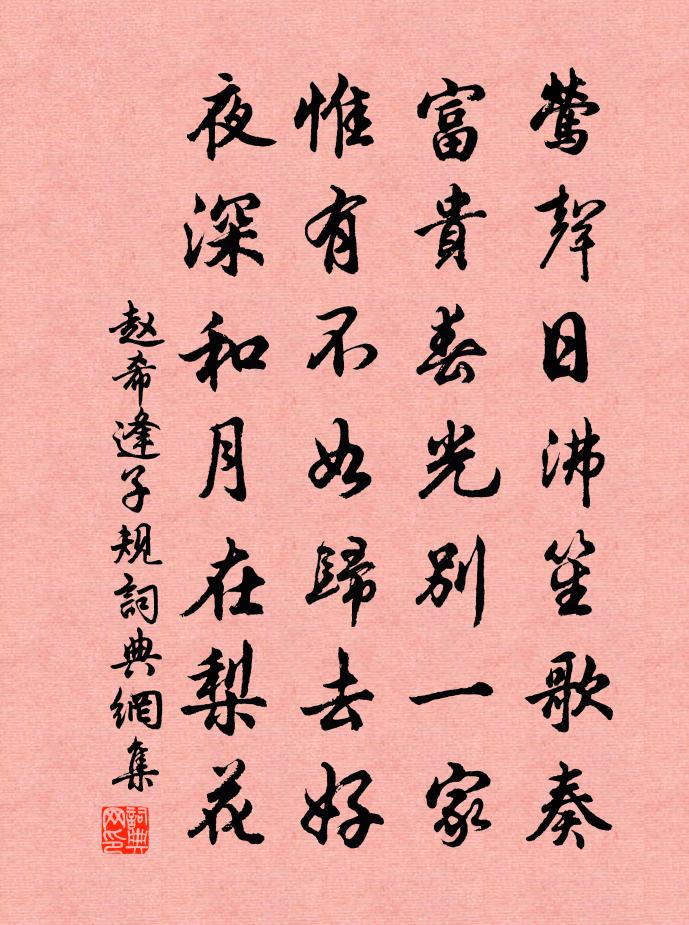 鶯聲日沸笙歌奏
富貴春光別一家
惟有不如歸去好
夜深和月在梨花
赵希逢子規詞典網集
詞典网印